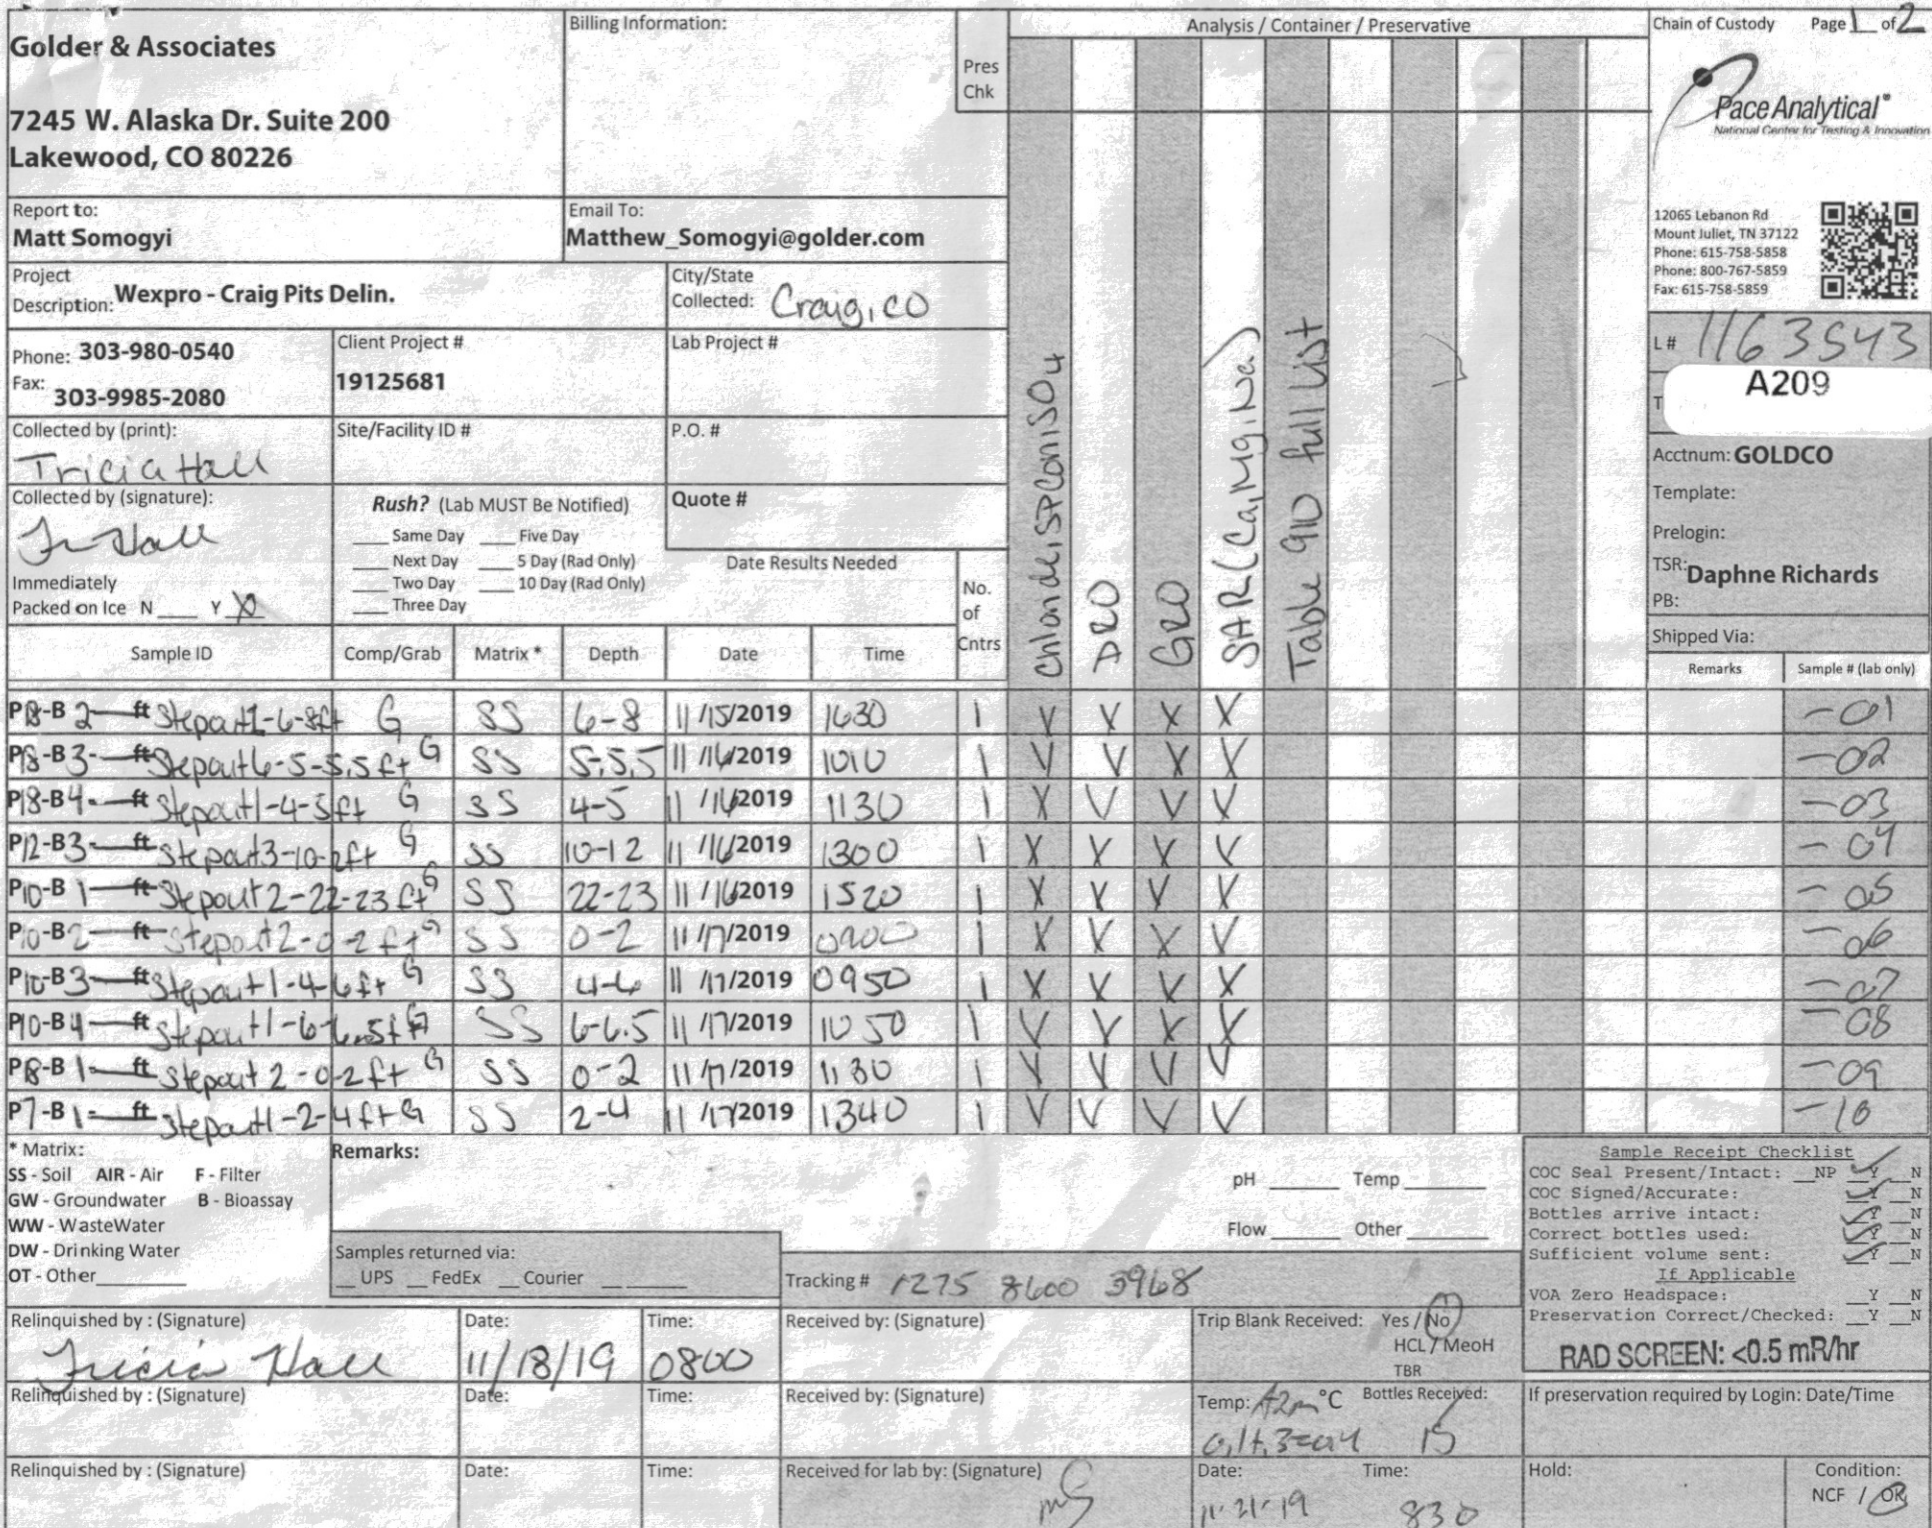 Golder & Associates
7245 W. Alaska Dr. Suite 200
Lakewood, CO 80226
Billing Information:
Pres
Chk
Analysis / Container / Preservative
Chain of Custody Page 1 of 2
Pace Analytical®
National Center for Testing & Innovation
12065 Lebanon Rd
Mount Juliet, TN 37122
Phone: 615-758-5858
Phone: 800-767-5859
Fax: 615-758-5859
Report to:
Matt Somogyi
Email To:
Matthew_Somogyi@golder.com
Project
Description: Wexpro - Craig Pits Delin.
City/State
Collected: Craig, CO
Phone: 303-980-0540
Fax: 303-9985-2080
Client Project #
19125681
Lab Project #
L# 1163543
T
A209
Collected by (print):
Tricia Hall
Site/Facility ID #
P.O. #
Acctnum: GOLDCO
Template:
Prelogin:
TSR: Daphne Richards
PB:
Shipped Via:
Collected by (signature):
Tr Hall
Immediately
Packed on Ice N ___ Y X
Rush? (Lab MUST Be Notified)
___ Same Day ___ Five Day
___ Next Day ___ 5 Day (Rad Only)
___ Two Day ___ 10 Day (Rad Only)
___ Three Day
Quote #
Date Results Needed
No.
of
Cntrs
Chloride, SPCon, SO4
DRO
GRO
SAR (Ca, Mg, Na)
Table 910 full list
Sample ID Comp/Grab Matrix * Depth Date Time Remarks Sample # (lab only)
P8-B 2- ft Stepout1-6-8ft G SS 6-8 11/15/2019 1630 1 X X X X -01
P8-B 3- ft Stepout6-5-5.5ft G SS 5-5.5 11/16/2019 1010 1 X X X X -02
P18-B4- ft Stepout1-4-5ft G SS 4-5 11/16/2019 1130 1 X X X X -03
P12-B3- ft Stepout3-10-12ft G SS 10-12 11/16/2019 1300 1 X X X X -04
P10-B 1 ft Stepout2-22-23ft G SS 22-23 11/16/2019 1520 1 X X X X -05
P10-B2 ft Stepout2-0-2ft G SS 0-2 11/17/2019 0900 1 X X X X -06
P10-B3 ft Stepout1-4-6ft G SS 4-6 11/17/2019 0950 1 X X X X -07
P10-B4 ft Stepout1-6-6.5ft G SS 6-6.5 11/17/2019 1050 1 X X X X -08
P8-B 1- ft Stepout 2-0-2ft G SS 0-2 11/17/2019 1130 1 X X X X -09
P7-B1- ft Stepout1-2-4ft G SS 2-4 11/17/2019 1340 1 X X X X -10
* Matrix:
SS - Soil AIR - Air F - Filter
GW - Groundwater B - Bioassay
WW - WasteWater
DW - Drinking Water
OT - Other
Remarks:
pH ______ Temp ______
Flow ______ Other ______
Samples returned via:
__ UPS __ FedEx __ Courier
Tracking # 1275 8600 3968
Sample Receipt Checklist
COC Seal Present/Intact: __NP ✓Y __N
COC Signed/Accurate: ✓Y __N
Bottles arrive intact: ✓Y __N
Correct bottles used: ✓Y __N
Sufficient volume sent: ✓Y __N
If Applicable
VOA Zero Headspace: __Y __N
Preservation Correct/Checked: __Y __N
RAD SCREEN: <0.5 mR/hr
Relinquished by : (Signature)
Tricia Hall
Date:
11/18/19
Time:
0800
Received by: (Signature)
Trip Blank Received: Yes / No
HCL / MeoH
TBR
Relinquished by : (Signature)
Date:
Time:
Received by: (Signature)
Temp: °C
Bottles Received:
15
If preservation required by Login: Date/Time
Relinquished by : (Signature)
Date:
Time:
Received for lab by: (Signature)
Date:
11-21-19
Time:
830
Hold:
Condition:
NCF / OK